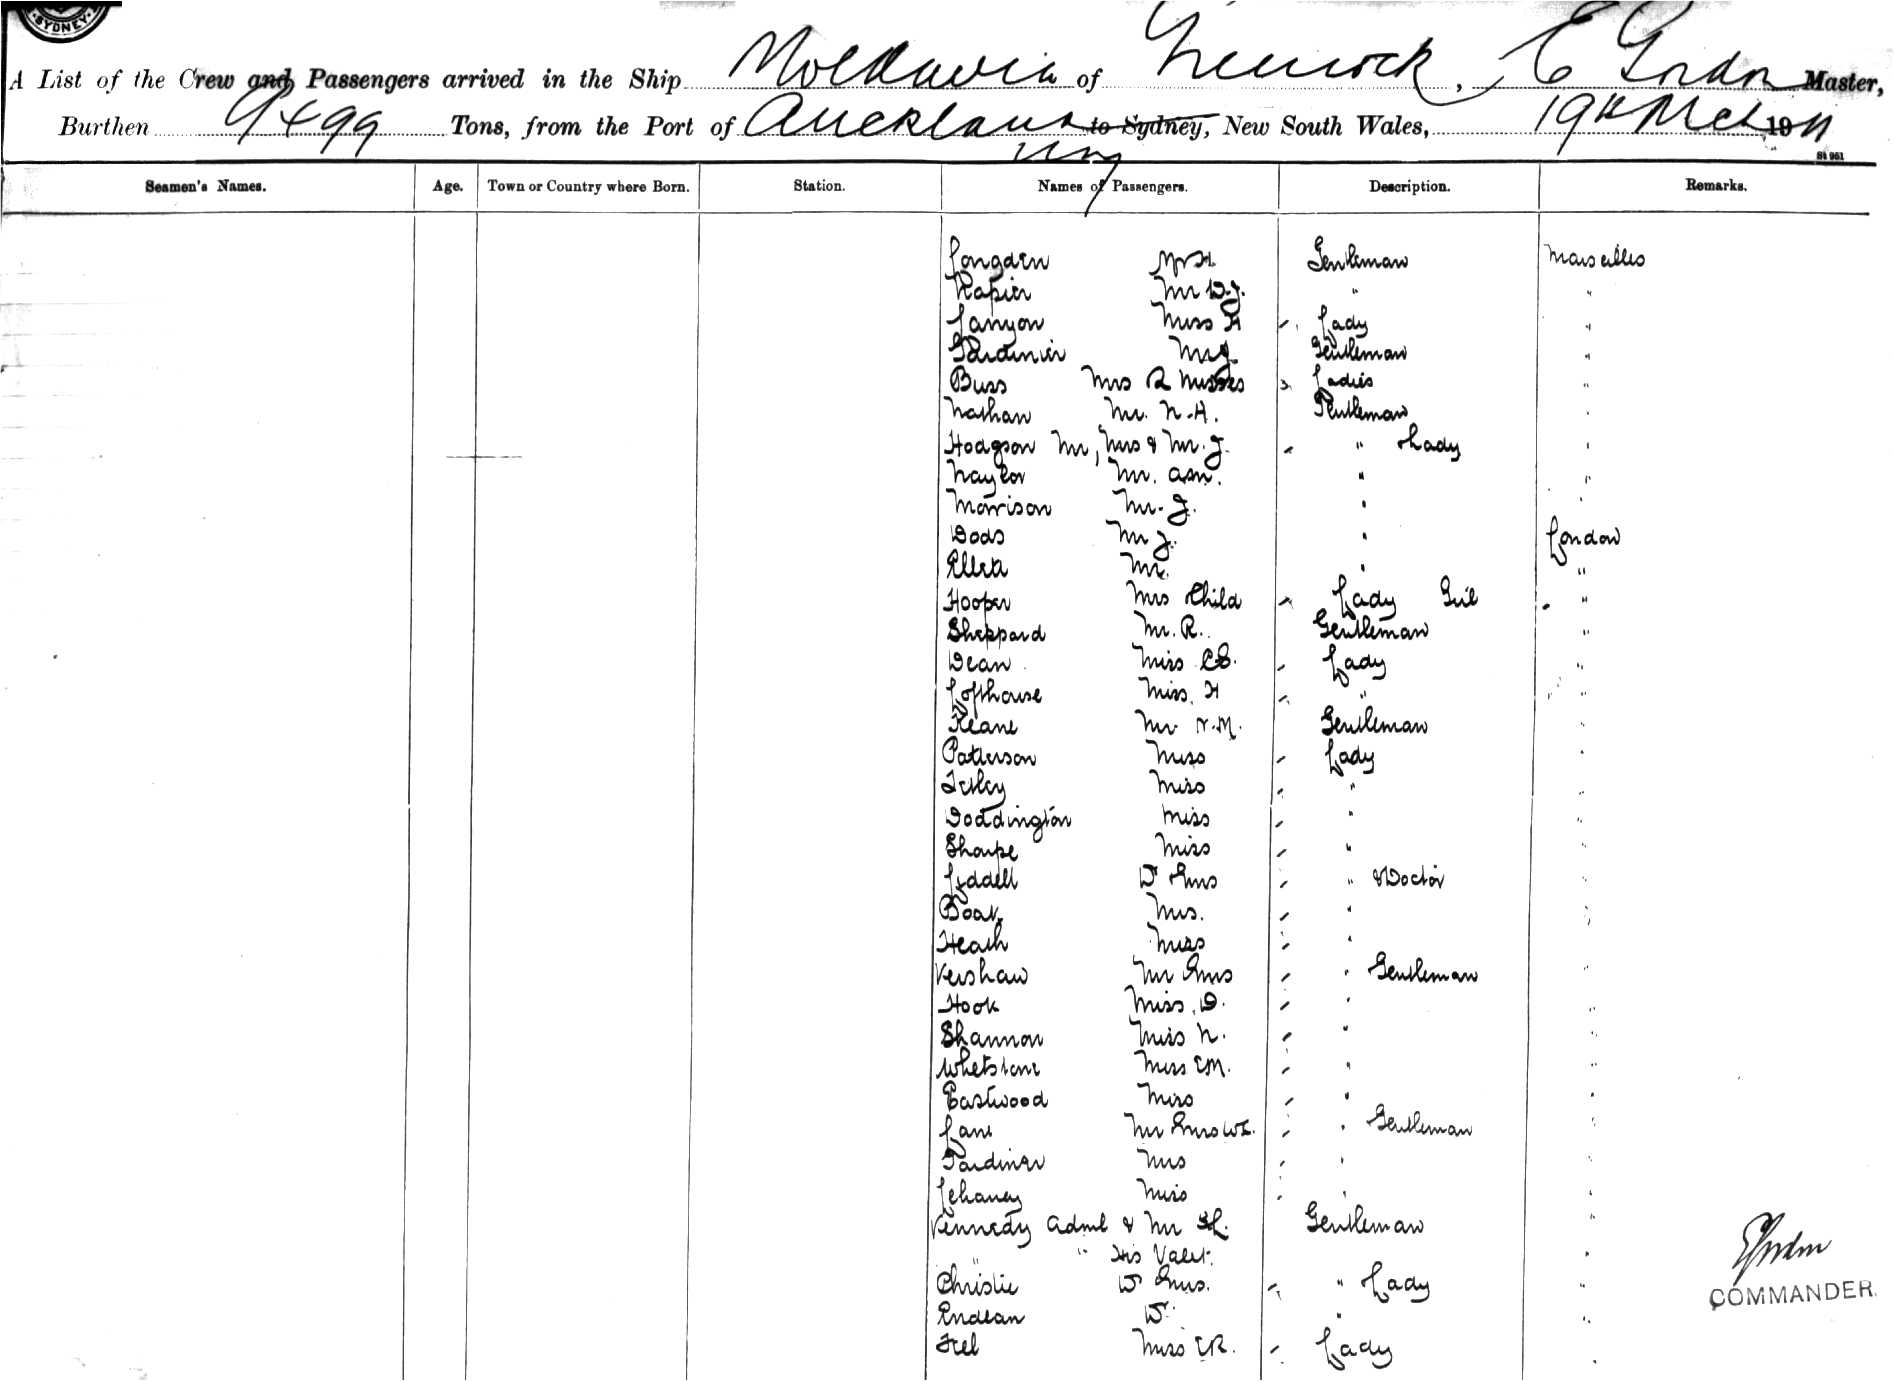 SYDNEY
A List of the Crew and Passengers arrived in the Ship Moldavia of Greenock, E Gordon Master,
Burthen 9499 Tons, from the Port of Auckland to Sydney, New South Wales, 19th Mch 1911
St 951
Seamen's Names. Age. Town or Country where Born. Station. Names of Passengers. Description. Remarks.
Longden Mr H Gentleman Marseilles
Napier Mr D.J. " "
Lanyon Miss H Lady "
Gardinier Mr J Gentleman "
Buss Mrs & Misses Ladies "
Nathan Mr. N.A. Gentleman "
Hodgson Mr, Mrs & Mr. J. " & Lady "
Naylor Mr. " "
Morrison Mr. J. " "
Dods Mr J. " London
Mr. " "
Hooper Mrs Child Lady Girl "
Sheppard Mr. R. Gentleman "
Dean Miss Lady "
Lofthouse Miss H " "
Keane Mr Gentleman "
Patterson Miss Lady "
Tetley Miss " "
Doddington Miss " "
Sharpe Miss " "
Lyddell Dr & Mrs " & Doctor "
Boak Mrs. " "
Heath Miss " "
Kershaw Mr & Mrs " Gentleman "
Hook Miss D. " "
Shannon Miss N. " "
Whetstone Miss E.M. " "
Eastwood Miss " "
Lane Mr & Mrs " Gentleman "
Gardiner Mrs " "
Lehaney Miss " "
Kennedy Adml & Mr Gentleman "
" " His Valet. "
Christie Dr & Mrs. " Lady "
Endean Dr " "
Miss E.R. Lady "
E Gordon
COMMANDER.